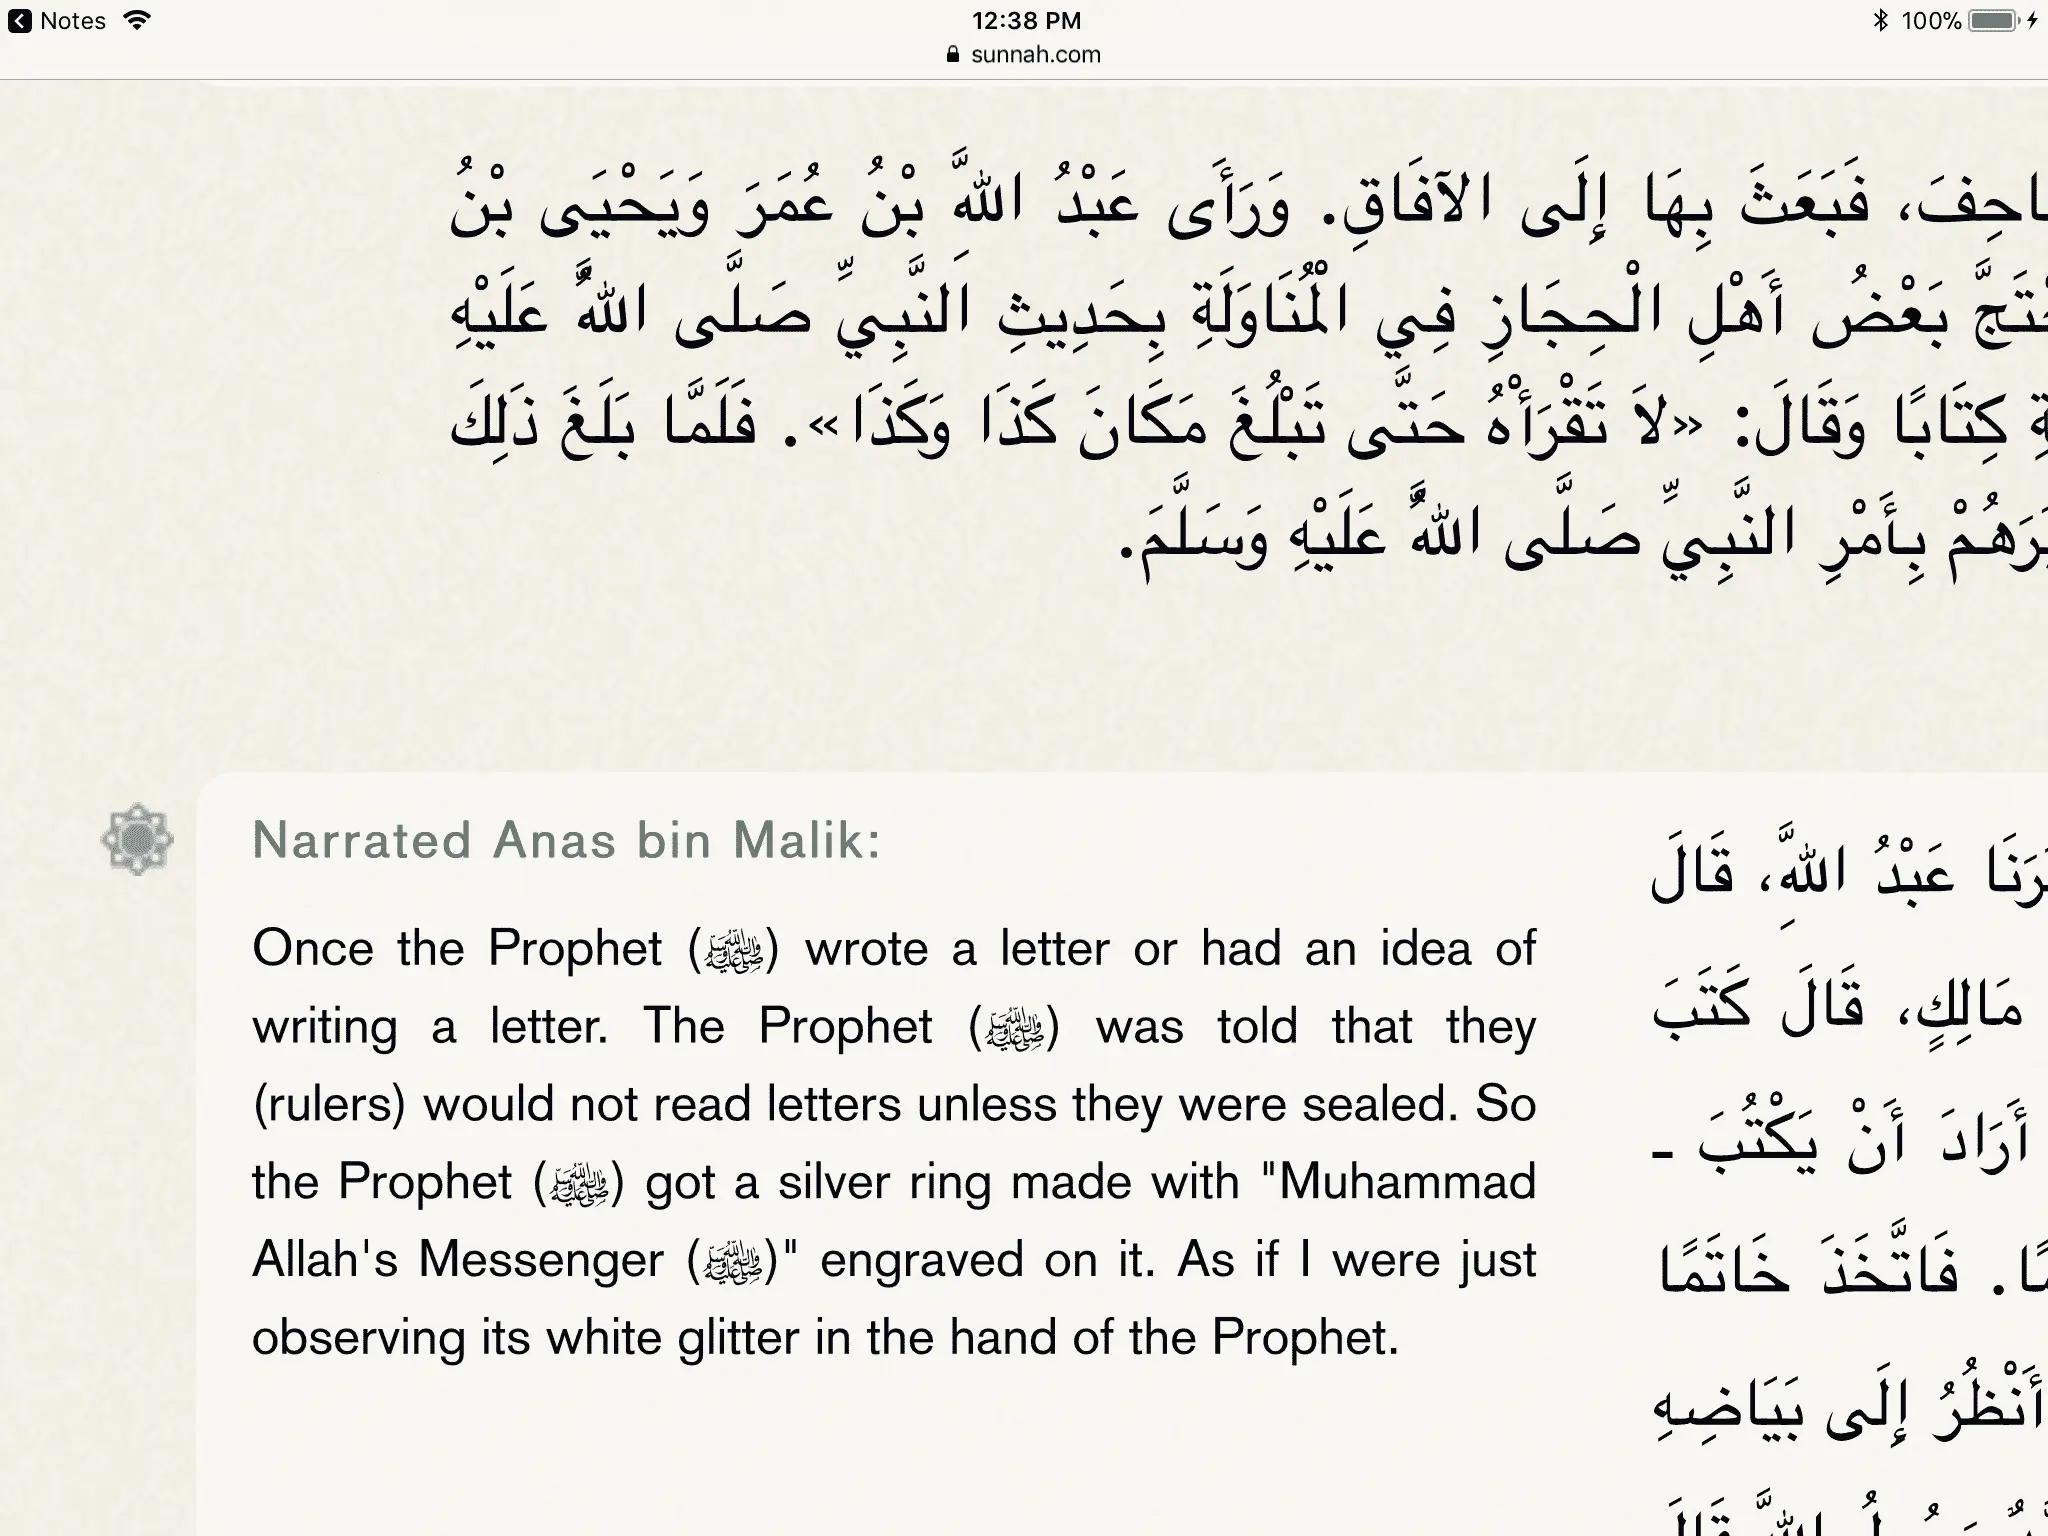 Notes
12:38 PM
100%
sunnah.com
فَبَعَثَ بِهَا إِلَى الآفَاقِ. وَرَأَى عَبْدُ اللَّهِ بْنُ عُمَرَ وَيَحْيَى بْنُ
بَعْضُ أَهْلِ الْحِجَازِ فِي الْمُنَاوَلَةِ بِحَدِيثِ النَّبِيِّ صَلَّى اللَّهُ عَلَيْهِ
كِتَابًا وَقَالَ: «لاَ تَقْرَأْهُ حَتَّى تَبْلُغَ مَكَانَ كَذَا وَكَذَا». فَلَمَّا بَلَغَ ذَلِكَ
بِأَمْرِ النَّبِيِّ صَلَّى اللَّهُ عَلَيْهِ وَسَلَّمَ.
Narrated Anas bin Malik:
Once the Prophet (ﷺ) wrote a letter or had an idea of
writing a letter. The Prophet (ﷺ) was told that they
(rulers) would not read letters unless they were sealed. So
the Prophet (ﷺ) got a silver ring made with "Muhammad
Allah's Messenger (ﷺ)" engraved on it. As if I were just
observing its white glitter in the hand of the Prophet.
عَبْدُ اللَّهِ، قَالَ
مَالِكٍ، قَالَ كَتَبَ
أَرَادَ أَنْ يَكْتُبَ ـ
فَاتَّخَذَ خَاتَمًا
أَنْظُرُ إِلَى بَيَاضِهِ